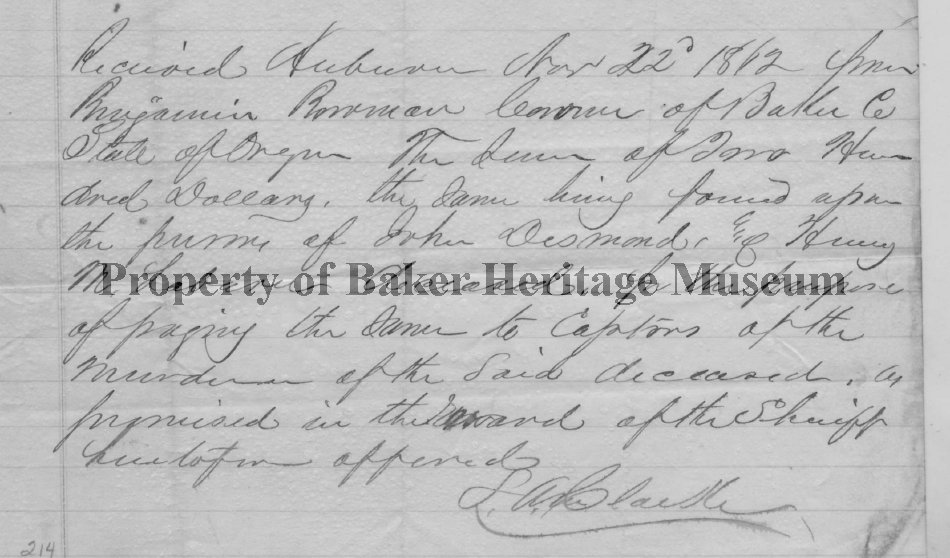 Received Auburn Nov 22d 1862 from
Benjamin Bowman Coroner of Baker Co
State of Oregon The Sum of Two Hun
dred Dollars, the Same being found upon
the persons of John Desmond, & Henry
Property of Baker Heritage Museum
M deceased, for the purpose
of paying the Same to Captors of the
Murderer of the Said deceased, as
promised in the reward of the Sheriff
heretofore offered
S. A. Clarke
214